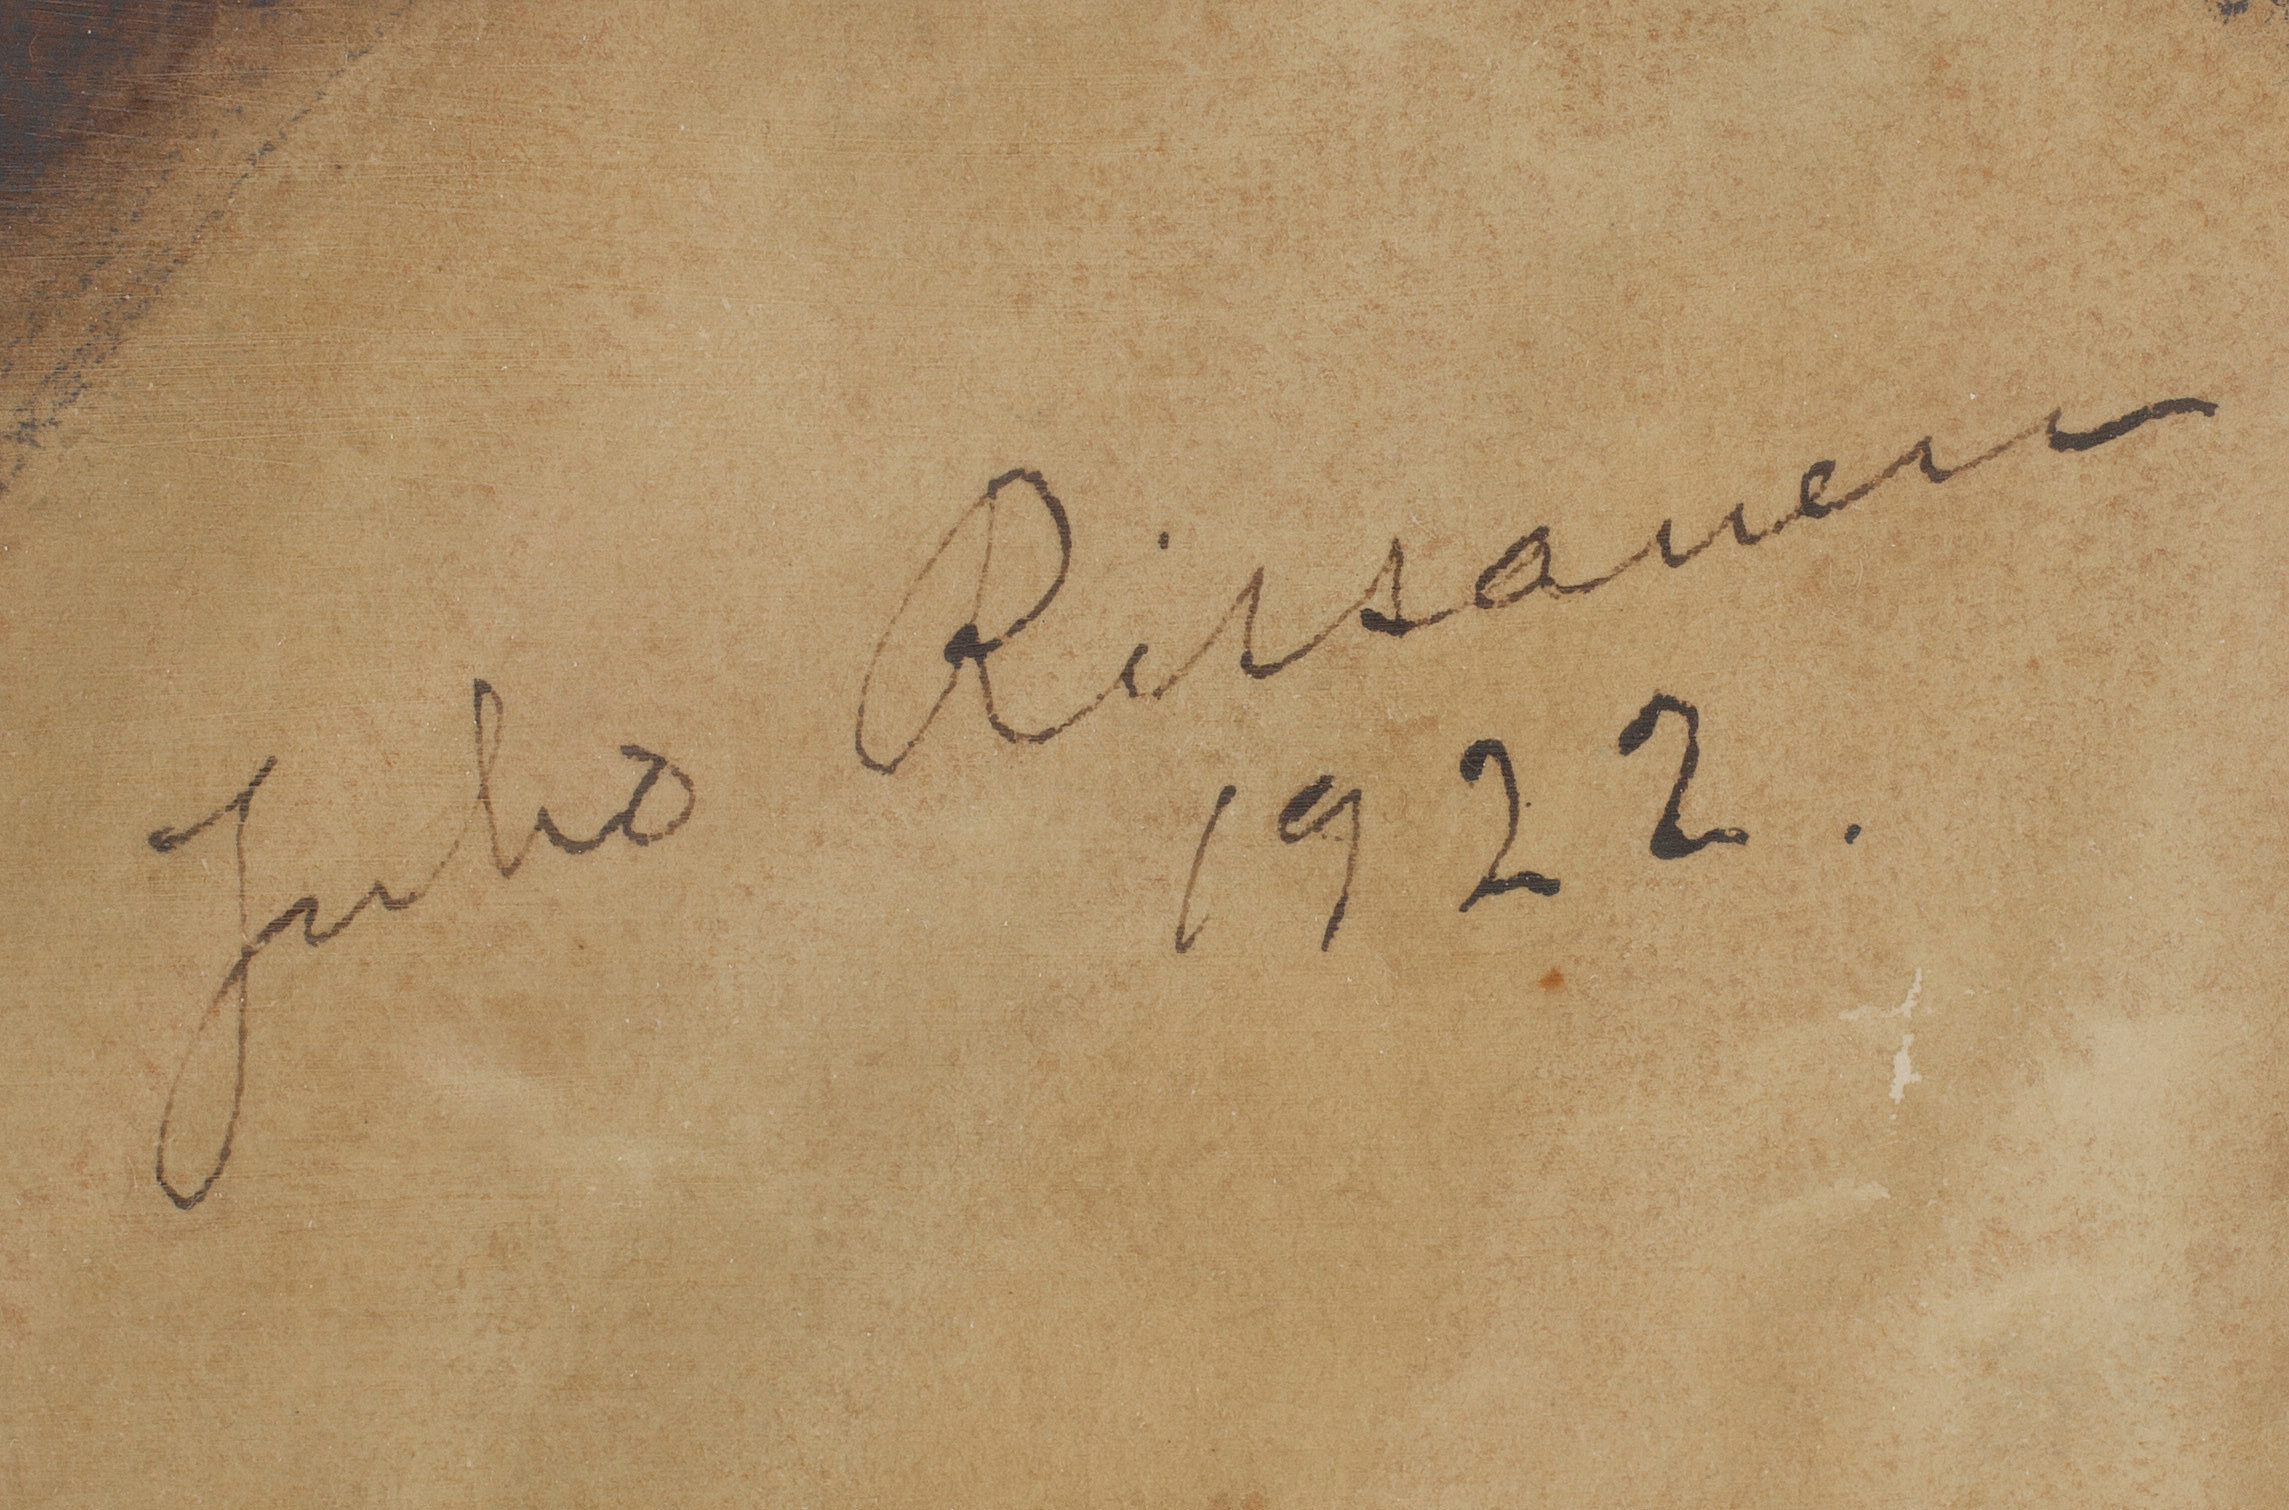 Juho Rissanen
1922.